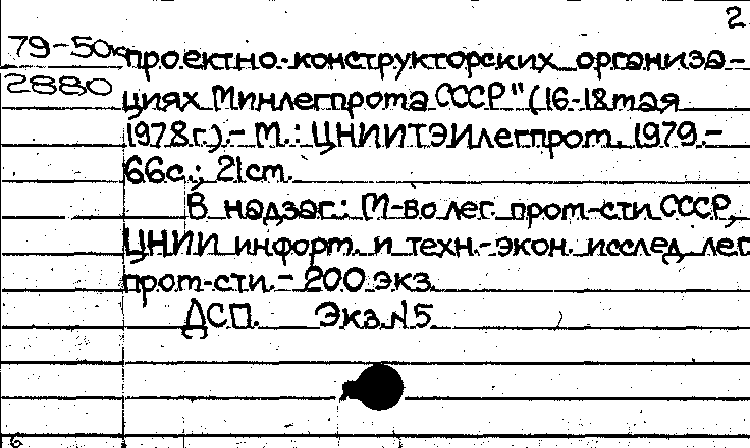 2
79-50к проектно-конструкторских организа-
2880 циях Минлегпрома СССР" (16-18 мая
1978г.).- М.: ЦНИИТЭИлегпром, 1979.-
66с.; 21см.
В надзаг.: М-во лег. пром-сти СССР,
ЦНИИ информ. и техн.-экон. исслед. лег
пром-сти.- 200 экз.
ДСП. Экз.№5
6